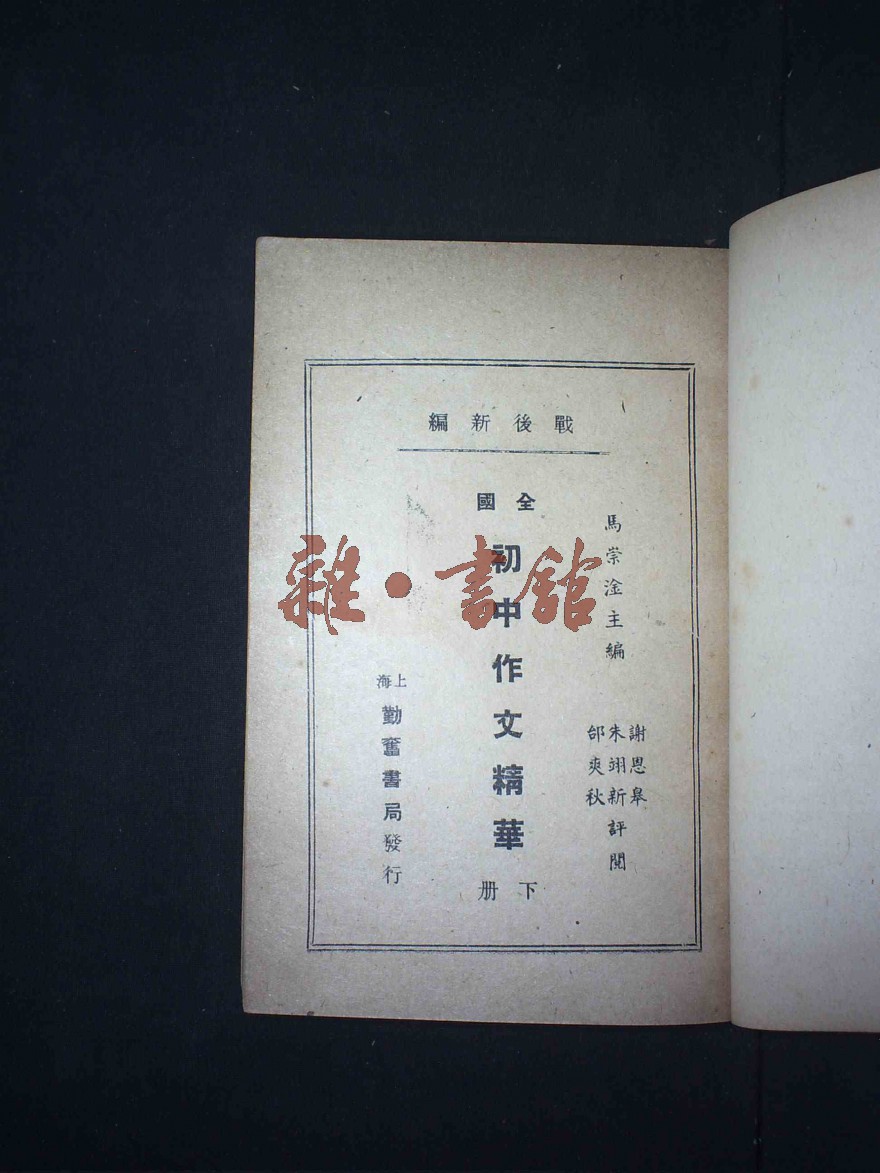 戰後新編
馬崇淦主編
謝恩皋
朱翊新評閱
邰爽秋
全國
初中作文精華
下册
上海
勤奮書局發行
雜·書館